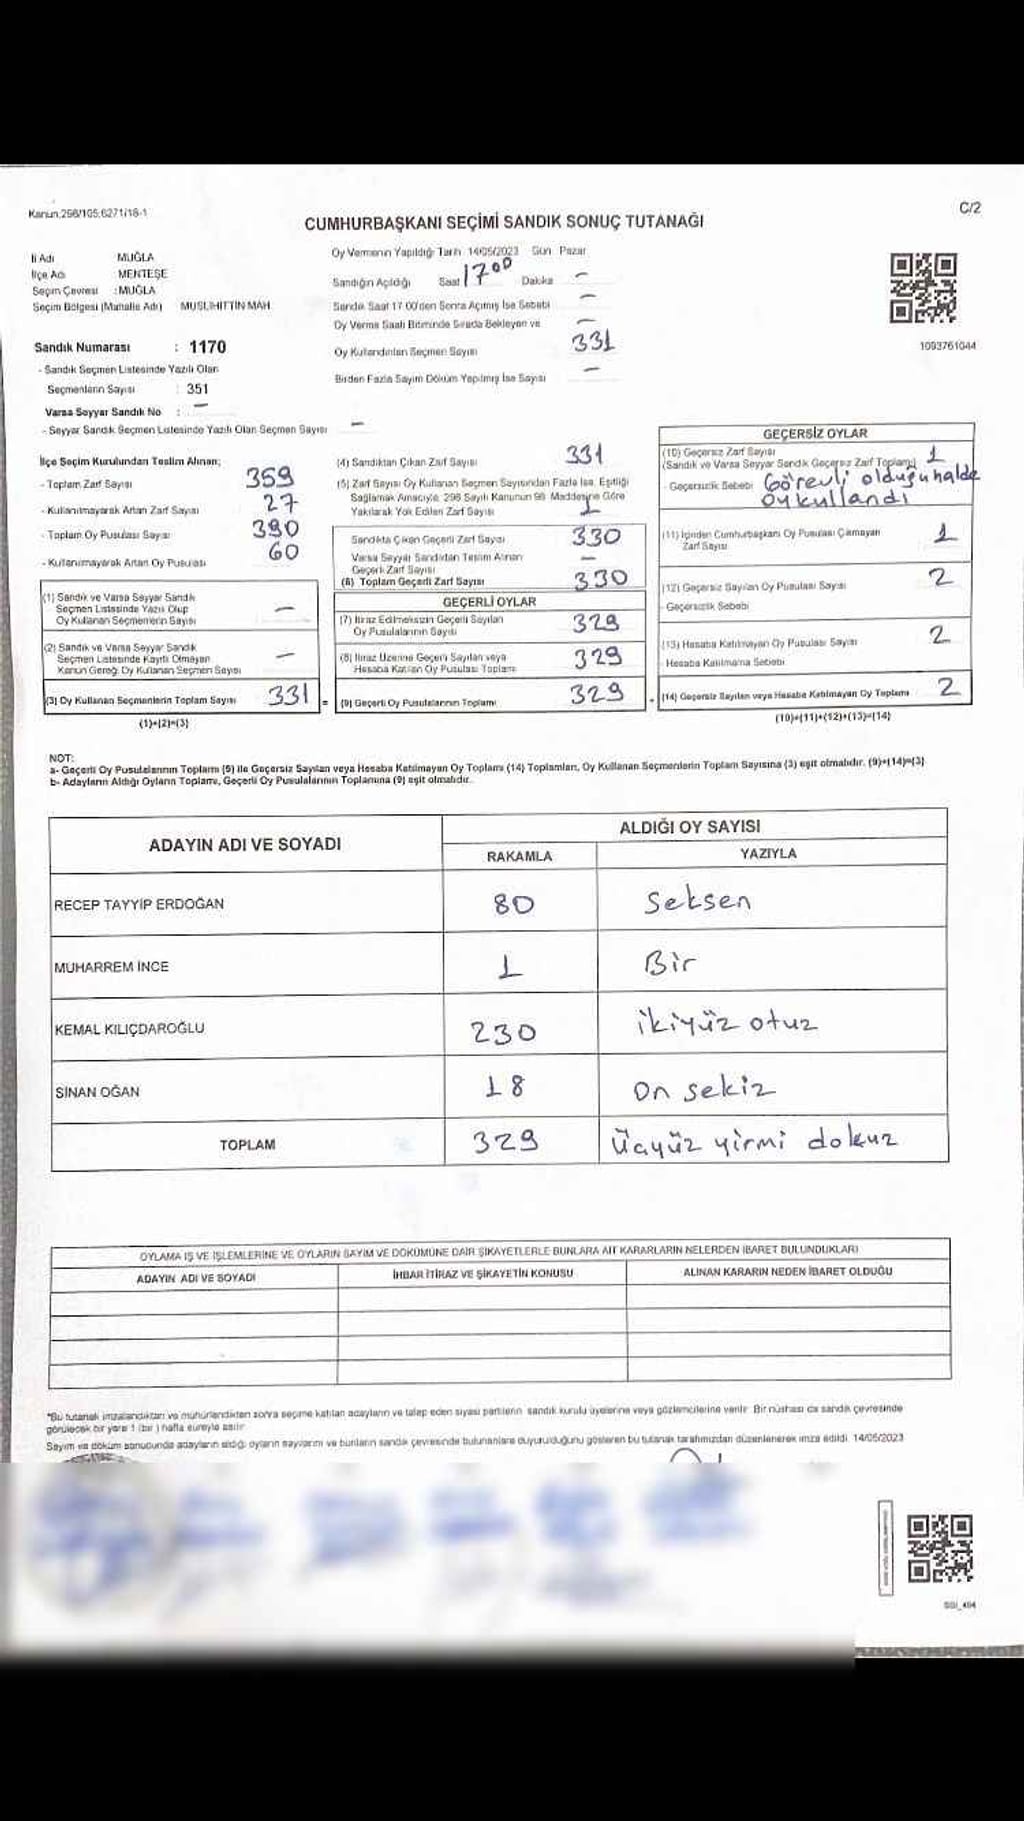 Kanun.298/105;6271/18-1
C/2
CUMHURBAŞKANI SEÇİMİ SANDIK SONUÇ TUTANAĞI
İl Adı MUĞLA
İlçe Adı MENTEŞE
Seçim Çevresi : MUĞLA
Seçim Bölgesi (Mahalle Adı) MUSLİHİTTİN MAH.
Oy Vermenin Yapıldığı Tarih 14/05/2023 Gün Pazar
Sandığın Açıldığı Saat 17 00 Dakika –
Sandık Saat 17.00'den Sonra Açılmış İse Sebebi –
Oy Verme Saati Bitiminde Sırada Bekleyen ve –
Oy Kullandırılan Seçmen Sayısı 331
Birden Fazla Sayım Döküm Yapılmış İse Sayısı –
1093761044
Sandık Numarası : 1170
- Sandık Seçmen Listesinde Yazılı Olan
Seçmenlerin Sayısı : 351
Varsa Seyyar Sandık No : –
- Seyyar Sandık Seçmen Listesinde Yazılı Olan Seçmen Sayısı –
İlçe Seçim Kurulundan Teslim Alınan;
- Toplam Zarf Sayısı 359
- Kullanılmayarak Artan Zarf Sayısı 27
- Toplam Oy Pusulası Sayısı 390
- Kullanılmayarak Artan Oy Pusulası 60
(1) Sandık ve Varsa Seyyar Sandık
Seçmen Listesinde Yazılı Olup
Oy Kullanan Seçmenlerin Sayısı –
(2) Sandık ve Varsa Seyyar Sandık
Seçmen Listesinde Kayıtlı Olmayan
Kanun Gereği Oy Kullanan Seçmen Sayısı –
(3) Oy Kullanan Seçmenlerin Toplam Sayısı 331 =
(1)+(2)=(3)
(4) Sandıktan Çıkan Zarf Sayısı 331
(5) Zarf Sayısı Oy Kullanan Seçmen Sayısından Fazla İse, Eşitliği
Sağlamak Amacıyla, 298 Sayılı Kanunun 98. Maddesine Göre
Yakılarak Yok Edilen Zarf Sayısı 1
Sandıkta Çıkan Geçerli Zarf Sayısı 330
Varsa Seyyar Sandıktan Teslim Alınan
Geçerli Zarf Sayısı –
(6) Toplam Geçerli Zarf Sayısı 330
GEÇERLİ OYLAR
(7) İtiraz Edilmeksizin Geçerli Sayılan
Oy Pusulalarının Sayısı 329
(8) İtiraz Üzerine Geçerli Sayılan veya
Hesaba Katılan Oy Pusulası Toplamı 329
(9) Geçerli Oy Pusulalarının Toplamı 329
GEÇERSİZ OYLAR
(10) Geçersiz Zarf Sayısı 1
(Sandık ve Varsa Seyyar Sandık Geçersiz Zarf Toplamı)
- Geçersizlik Sebebi Görevli olduğu halde
oy kullandı
(11) İçinden Cumhurbaşkanı Oy Pusulası Çıkmayan
Zarf Sayısı 1
(12) Geçersiz Sayılan Oy Pusulası Sayısı 2
- Geçersizlik Sebebi
(13) Hesaba Katılmayan Oy Pusulası Sayısı 2
- Hesaba Katılmama Sebebi
(14) Geçersiz Sayılan veya Hesaba Katılmayan Oy Toplamı 2
(10)+(11)+(12)+(13)=(14)
NOT:
a- Geçerli Oy Pusulalarının Toplamı (9) ile Geçersiz Sayılan veya Hesaba Katılmayan Oy Toplamı (14) Toplamları, Oy Kullanan Seçmenlerin Toplam Sayısına (3) eşit olmalıdır. (9)+(14)=(3)
b- Adayların Aldığı Oyların Toplamı, Geçerli Oy Pusulalarının Toplamına (9) eşit olmalıdır.
ADAYIN ADI VE SOYADI ALDIĞI OY SAYISI
RAKAMLA YAZIYLA
RECEP TAYYİP ERDOĞAN 80 Seksen
MUHARREM İNCE 1 Bir
KEMAL KILIÇDAROĞLU 230 ikiyüz otuz
SİNAN OĞAN 18 On sekiz
TOPLAM 329 Üçyüz yirmi dokuz
OYLAMA İŞ VE İŞLEMLERİNE VE OYLARIN SAYIM VE DÖKÜMÜNE DAİR ŞİKAYETLERLE BUNLARA AİT KARARLARIN NELERDEN İBARET BULUNDUKLARI
ADAYIN ADI VE SOYADI İHBAR İTİRAZ VE ŞİKAYETİN KONUSU ALINAN KARARIN NEDEN İBARET OLDUĞU
*Bu tutanak imzalandıktan ve mühürlendikten sonra seçime katılan adayların ve talep eden siyasi partilerin sandık kurulu üyelerine veya gözlemcilerine verilir. Bir nüshası da sandık çevresinde
görülecek bir yere 1 (bir ) hafta süreyle asılır
Sayım ve döküm sonucunda adayların aldığı oyların sayılarını ve bunların sandık çevresinde bulunanlara duyurulduğunu gösteren bu tutanak tarafımızdan düzenlenerek imza edildi. 14/05/2023